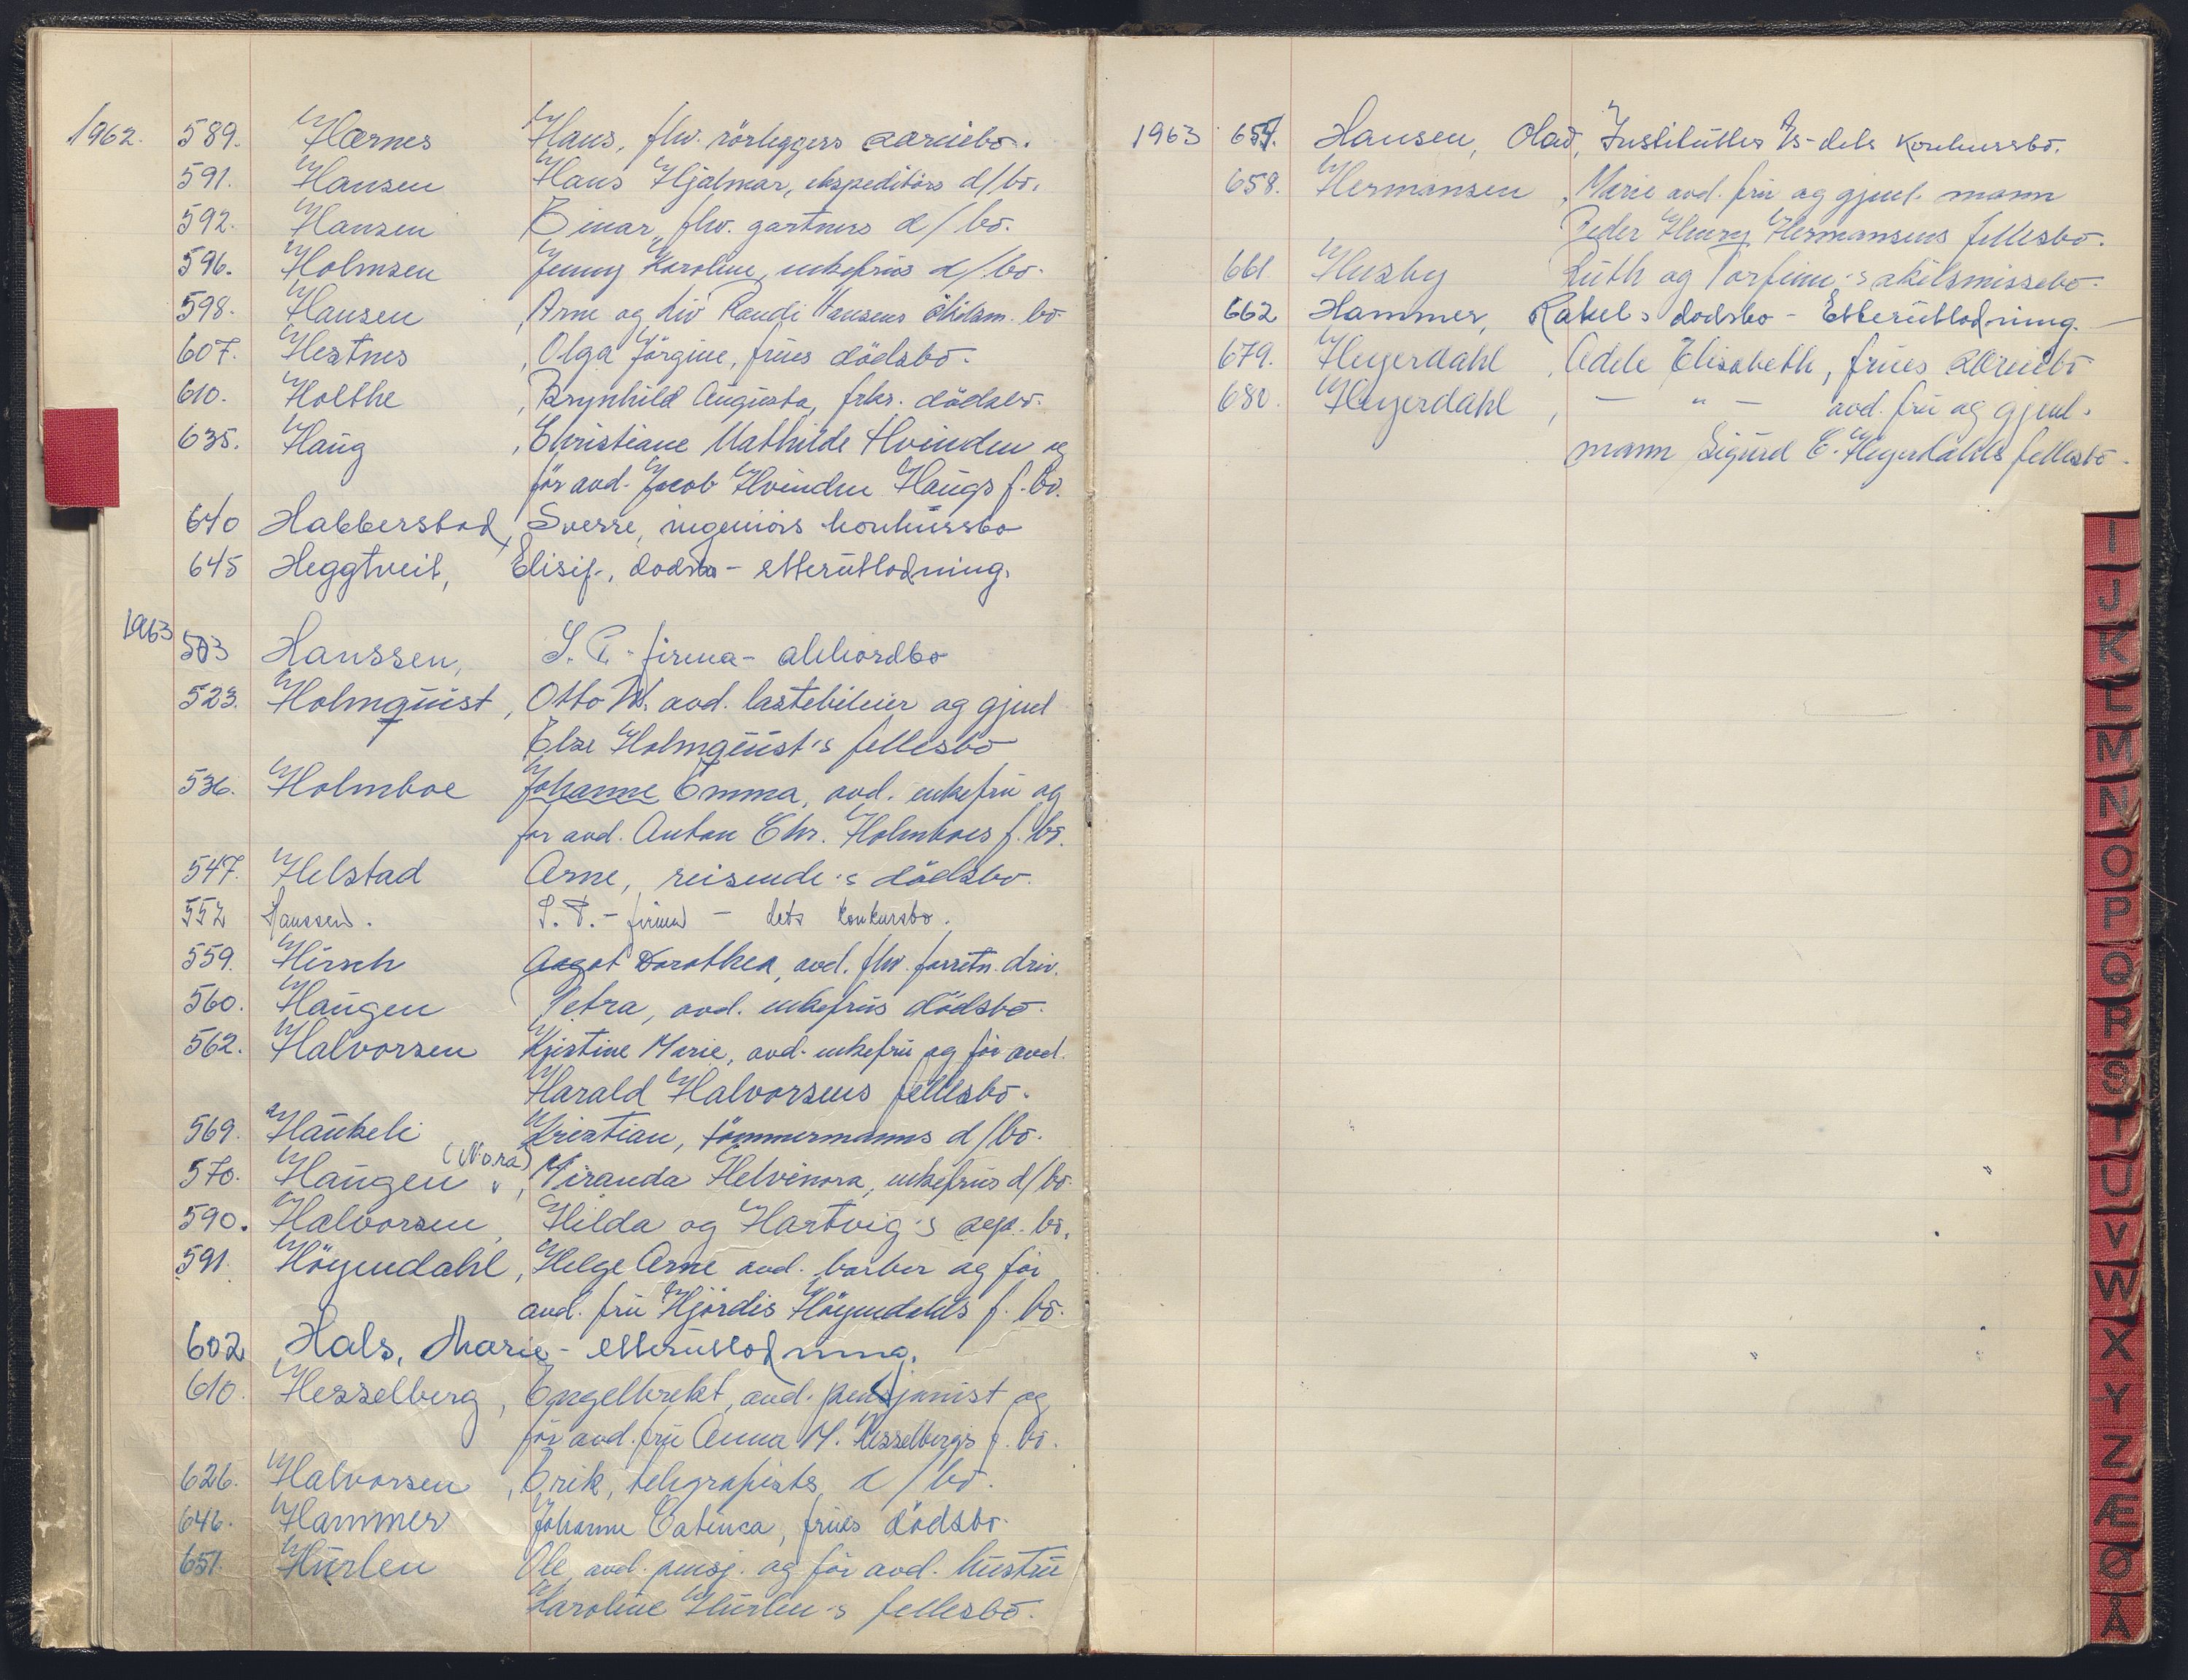 1962. 589. Hærnes Hans, fhv. rörleggers særiebo.
591. Hansen Hans Hjalmar, ekspeditörs d/bo.
592. Hansen Einar, fhv. gartners d/bo.
596. Holmsen Jenny Karoline, enkefrus d/bo.
598. Hansen, Arne og Liv Randi Hansens skilsm. bo
607. Hestnes, Olga Jörgine, frues dödsbo.
610. Holthe, Brynhild Augusta, frks. dödsbo.
635. Haug, Christiane Mathilde Hvinden og
för avd. Jacob Hvinden Haugs f. bo.
640 Habberstad, Sverre, ingeniörs konkursbo
645 Heggtveit, Elisif, dødsbo - etterutlodning.
1963 503 Hanssen, S. P. - firma - akkordbo
523. Holmquist, Otto W. avd. lastebileier og gjenl
Else Holmquist's fellesbo
536. Holmboe Johanne Emma, avd. enkefru og
för avd. Anton Chr. Holmboes f. bo.
547. Helstad Arne, reisende's dödsbo.
552 Hanssen. S. P. - firma - dets konkursbo.
559. Hirsch Aagot Dorothea, avd. fhv. forretn. driv.
560. Haugen Petra, avd. enkefrus dödsbo.
562. Halvorsen Kristine Marie, avd. enkefru og för avd.
Harald Halvorsens fellesbo.
569. Haukeli Kristian, tömmermanns d/bo.
(Nora)
570. Haugen, Miranda Helvinora, enkefrus d/bo.
590. Halvorsen, Hilda og Hartvig's sep. bo.
591. Höyendahl, Helge Arne avd. barber og för
avd. fru Hjördis Höyendahls f. bo.
602 Hals, Marie - etterutlodning.
610. Hesselberg, Engelbrekt, avd. pensjonist og
för avd. fru Anna M. Hesselbergs f. bo.
626. Halvorsen, Erik, telegrafists d/bo.
646. Hammer Johanne Catinca, frues dödsbo.
651. Hurlen Ole, avd. pensj. og för avd. hustru
Karoline Hurlen's fellesbo.
1963 657. Hansen, Olav, Instituttes A/s - dets konkursbo.
658. Hermansen, Marie avd. fru og gjenl. mann
Peder Henry Hermansens fellesbo.
661 Husby Ruth og Torfinn's skilsmissebo.
662 Hammer, Rakels dødsbo - Etterutlodning.
679. Heyerdahl, Adele Elisabeth, frues særiebo
680. Heyerdahl, — " — avd. fru og gjenl.
mann Sigurd E. Heyerdahls fellesbo.
I
J
K
L
M
N
O
P
Q
R
S
T
U
V
W
X
Y
Z
Æ
Ø
Å